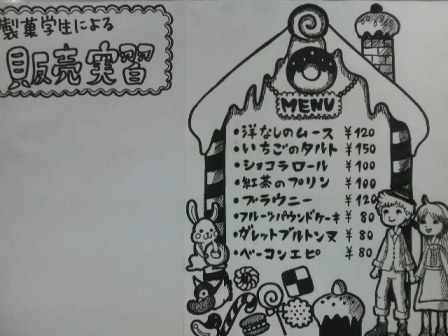 製菓学生による
販売実習
MENU
・洋なしのムース ¥120
・いちごのタルト ¥150
・ショコラロール ¥100
・紅茶のプリン ¥100
・ブラウニー ¥120
・フルーツパウンドケーキ ¥80
・ガレットブルトンヌ ¥80
・ベーコンエピ ¥80